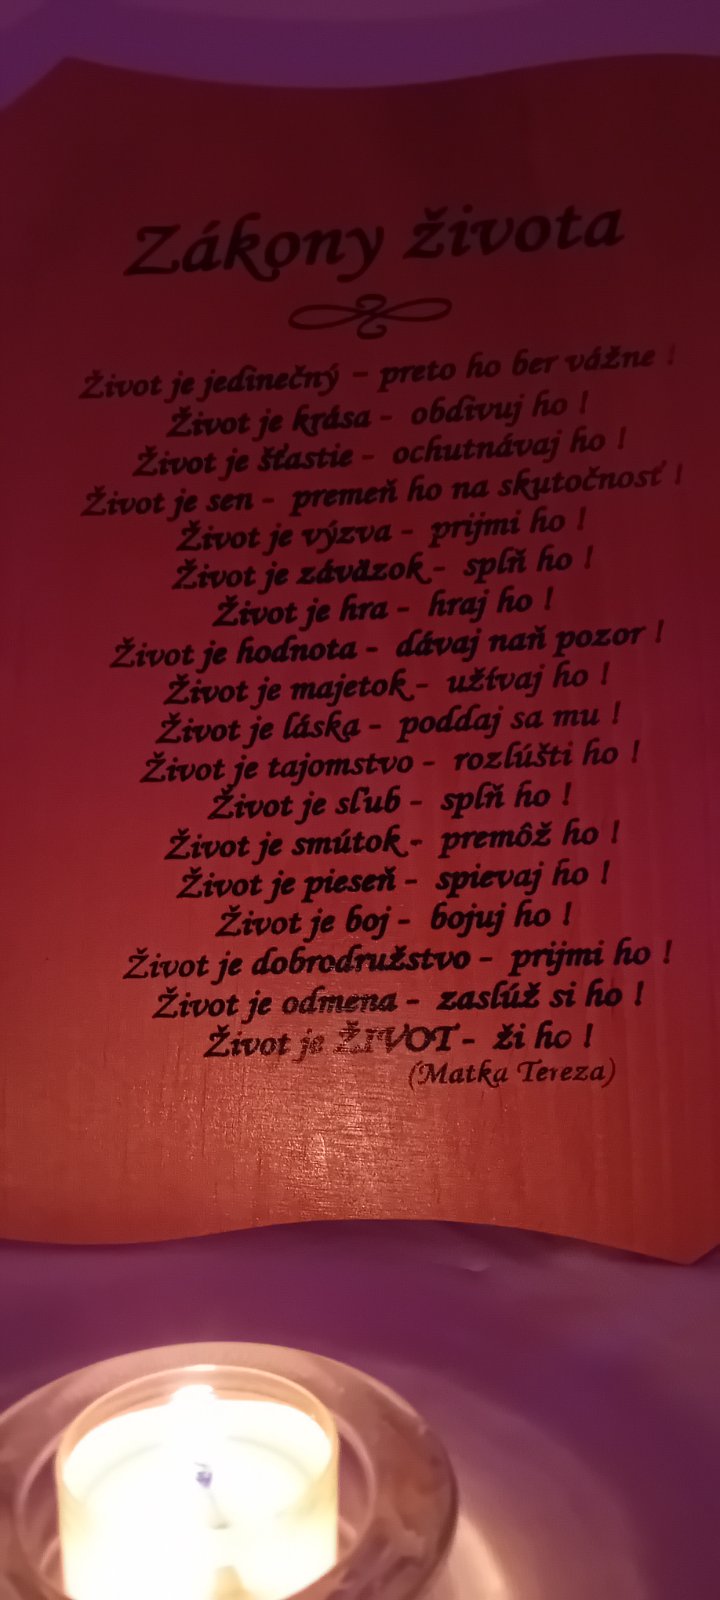 Zákony života
Život je jedinečný - preto ho ber vážne !
Život je krása - obdivuj ho !
Život je šťastie - ochutnávaj ho !
Život je sen - premeň ho na skutočnosť !
Život je výzva - prijmi ho !
Život je záväzok - splň ho !
Život je hra - hraj ho !
Život je hodnota - dávaj naň pozor !
Život je majetok - užívaj ho !
Život je láska - poddaj sa mu !
Život je tajomstvo - rozlúšti ho !
Život je sľub - splň ho !
Život je smútok - premôž ho !
Život je pieseň - spievaj ho !
Život je boj - bojuj ho !
Život je dobrodružstvo - prijmi ho !
Život je odmena - zaslúž si ho !
Život je ŽIVOT - ži ho !
(Matka Tereza)